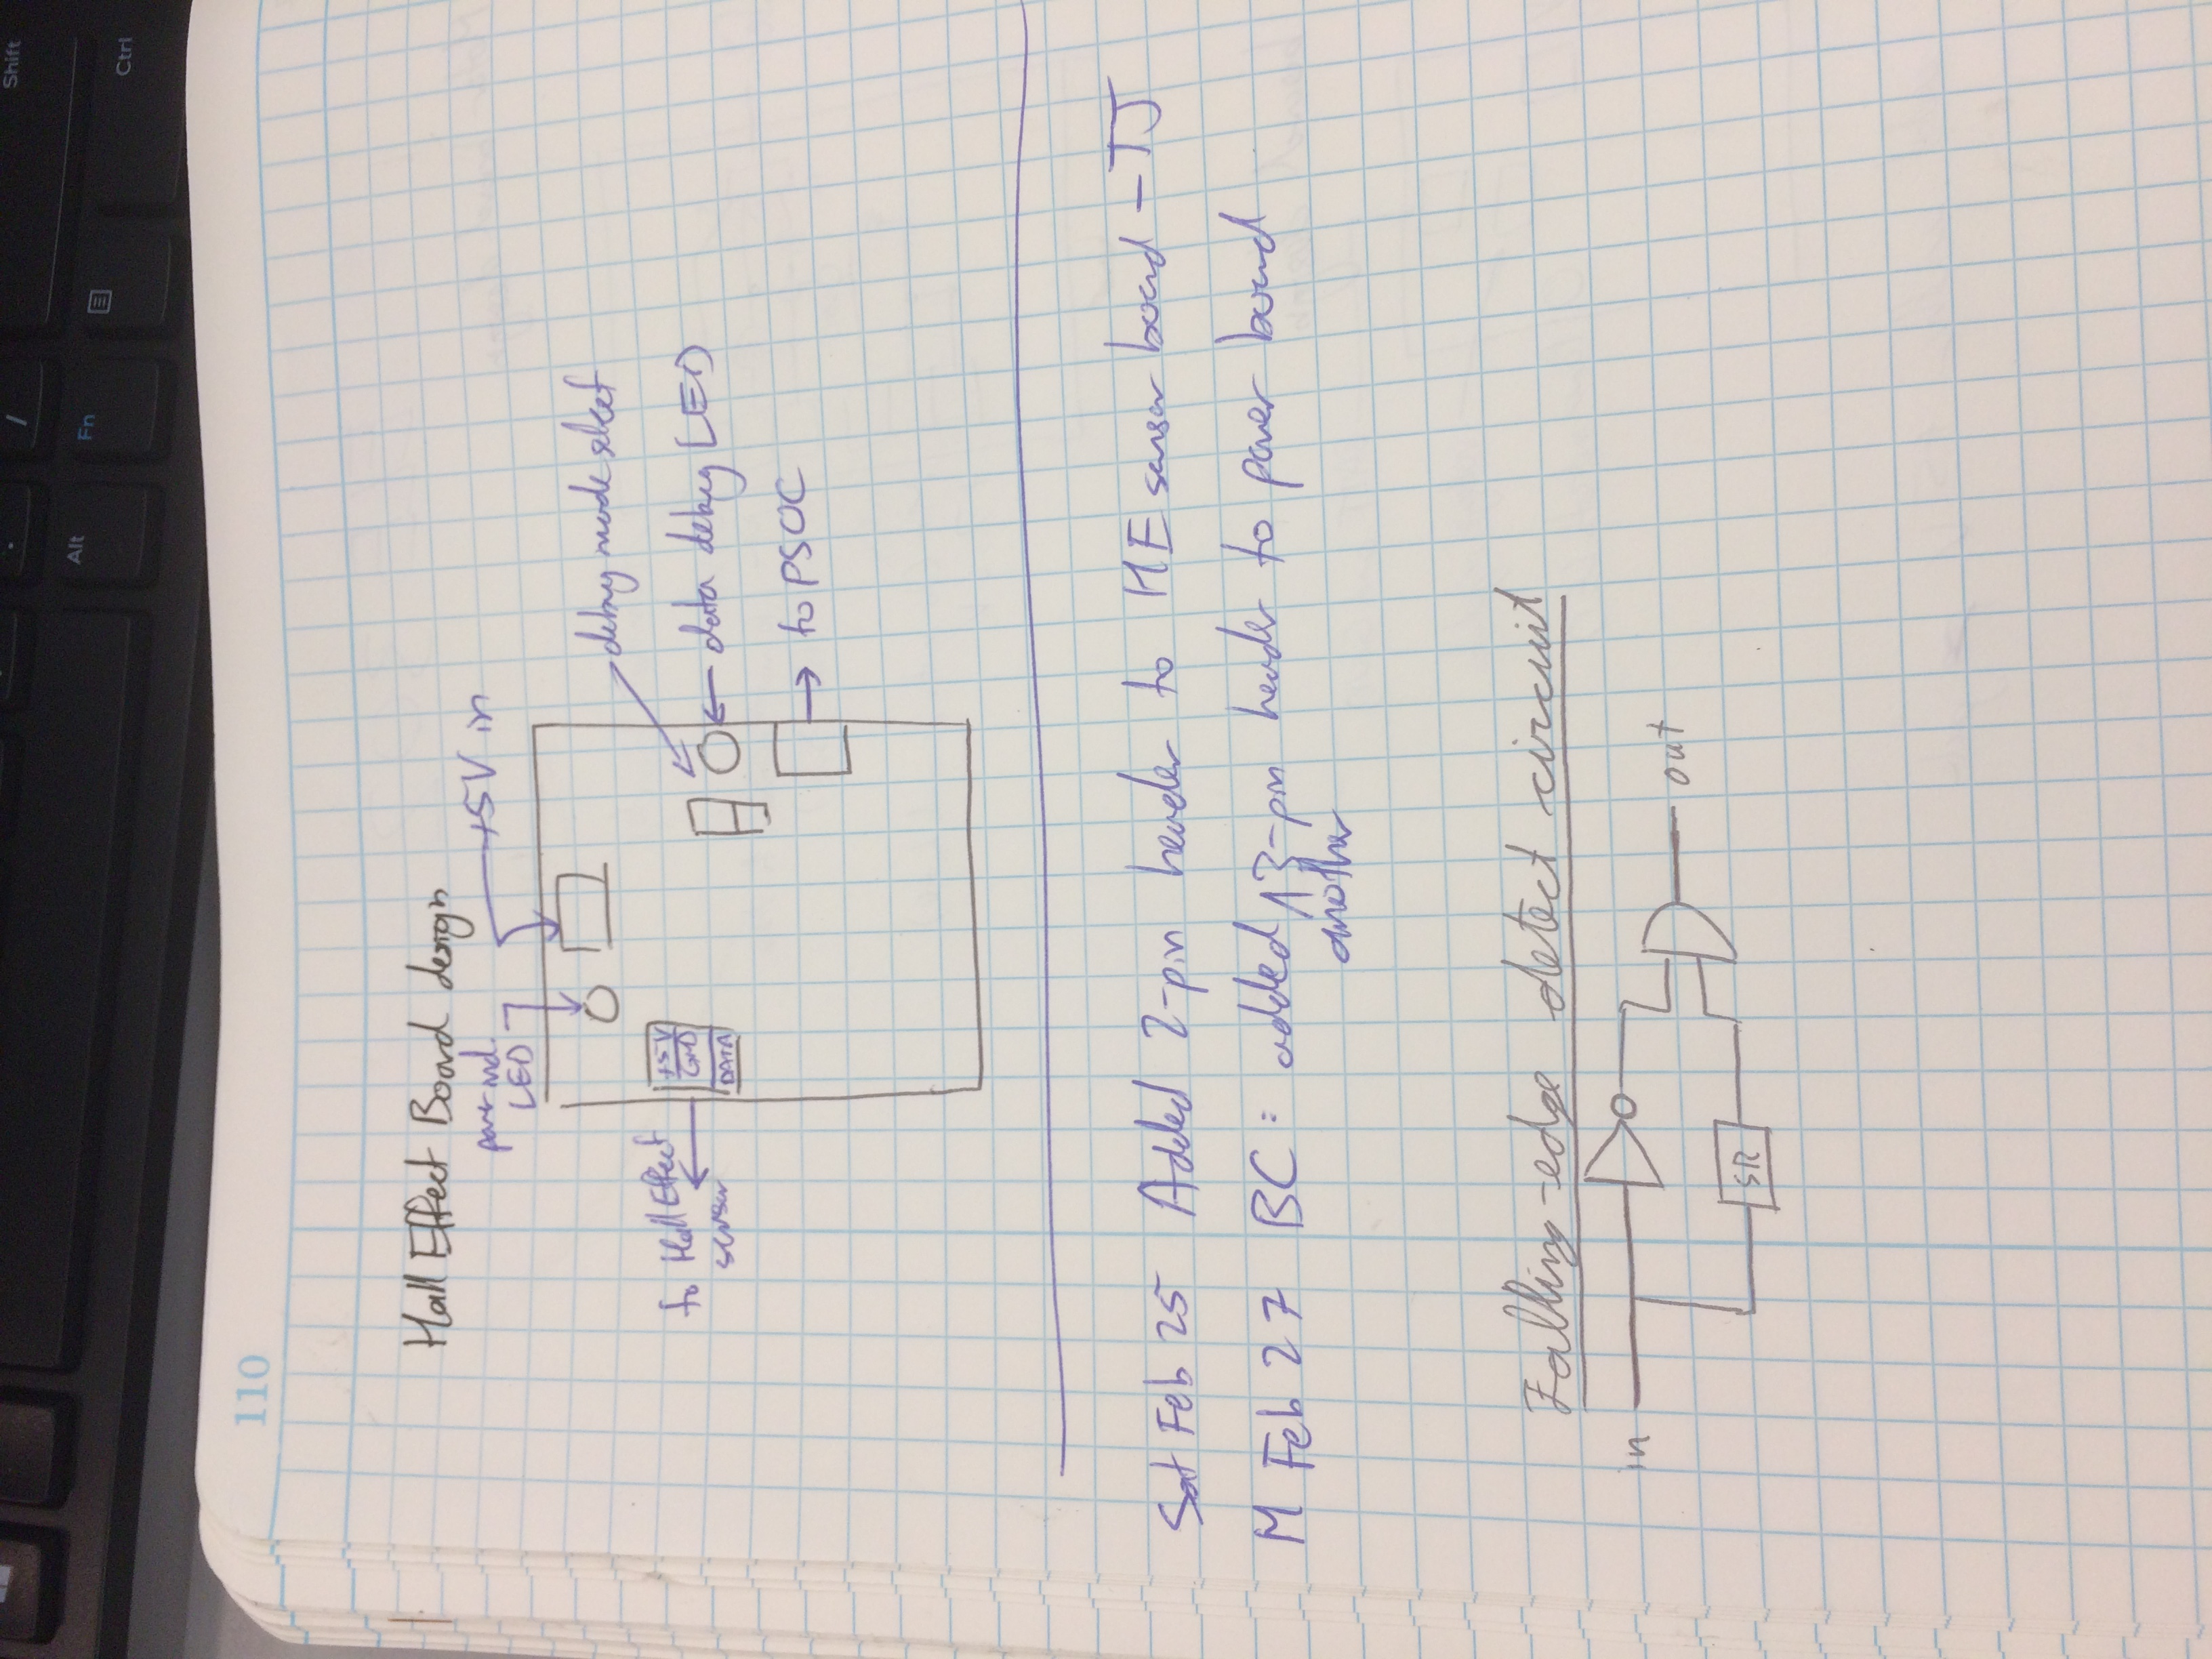 Shift
Alt
Fn
Ctrl
110
Hall Effect Board design
power ind.
LED
+5V in
debug mode select
to Hall Effect
sensor
+5V
GND
DATA
data debug LED
to PSOC
Sat Feb 25 Added 2-pin header to HE sensor board - TJ
M Feb 27 BC: added ^ 3-pin header to power board
another
Falling-edge detect circuit
in
out
SR